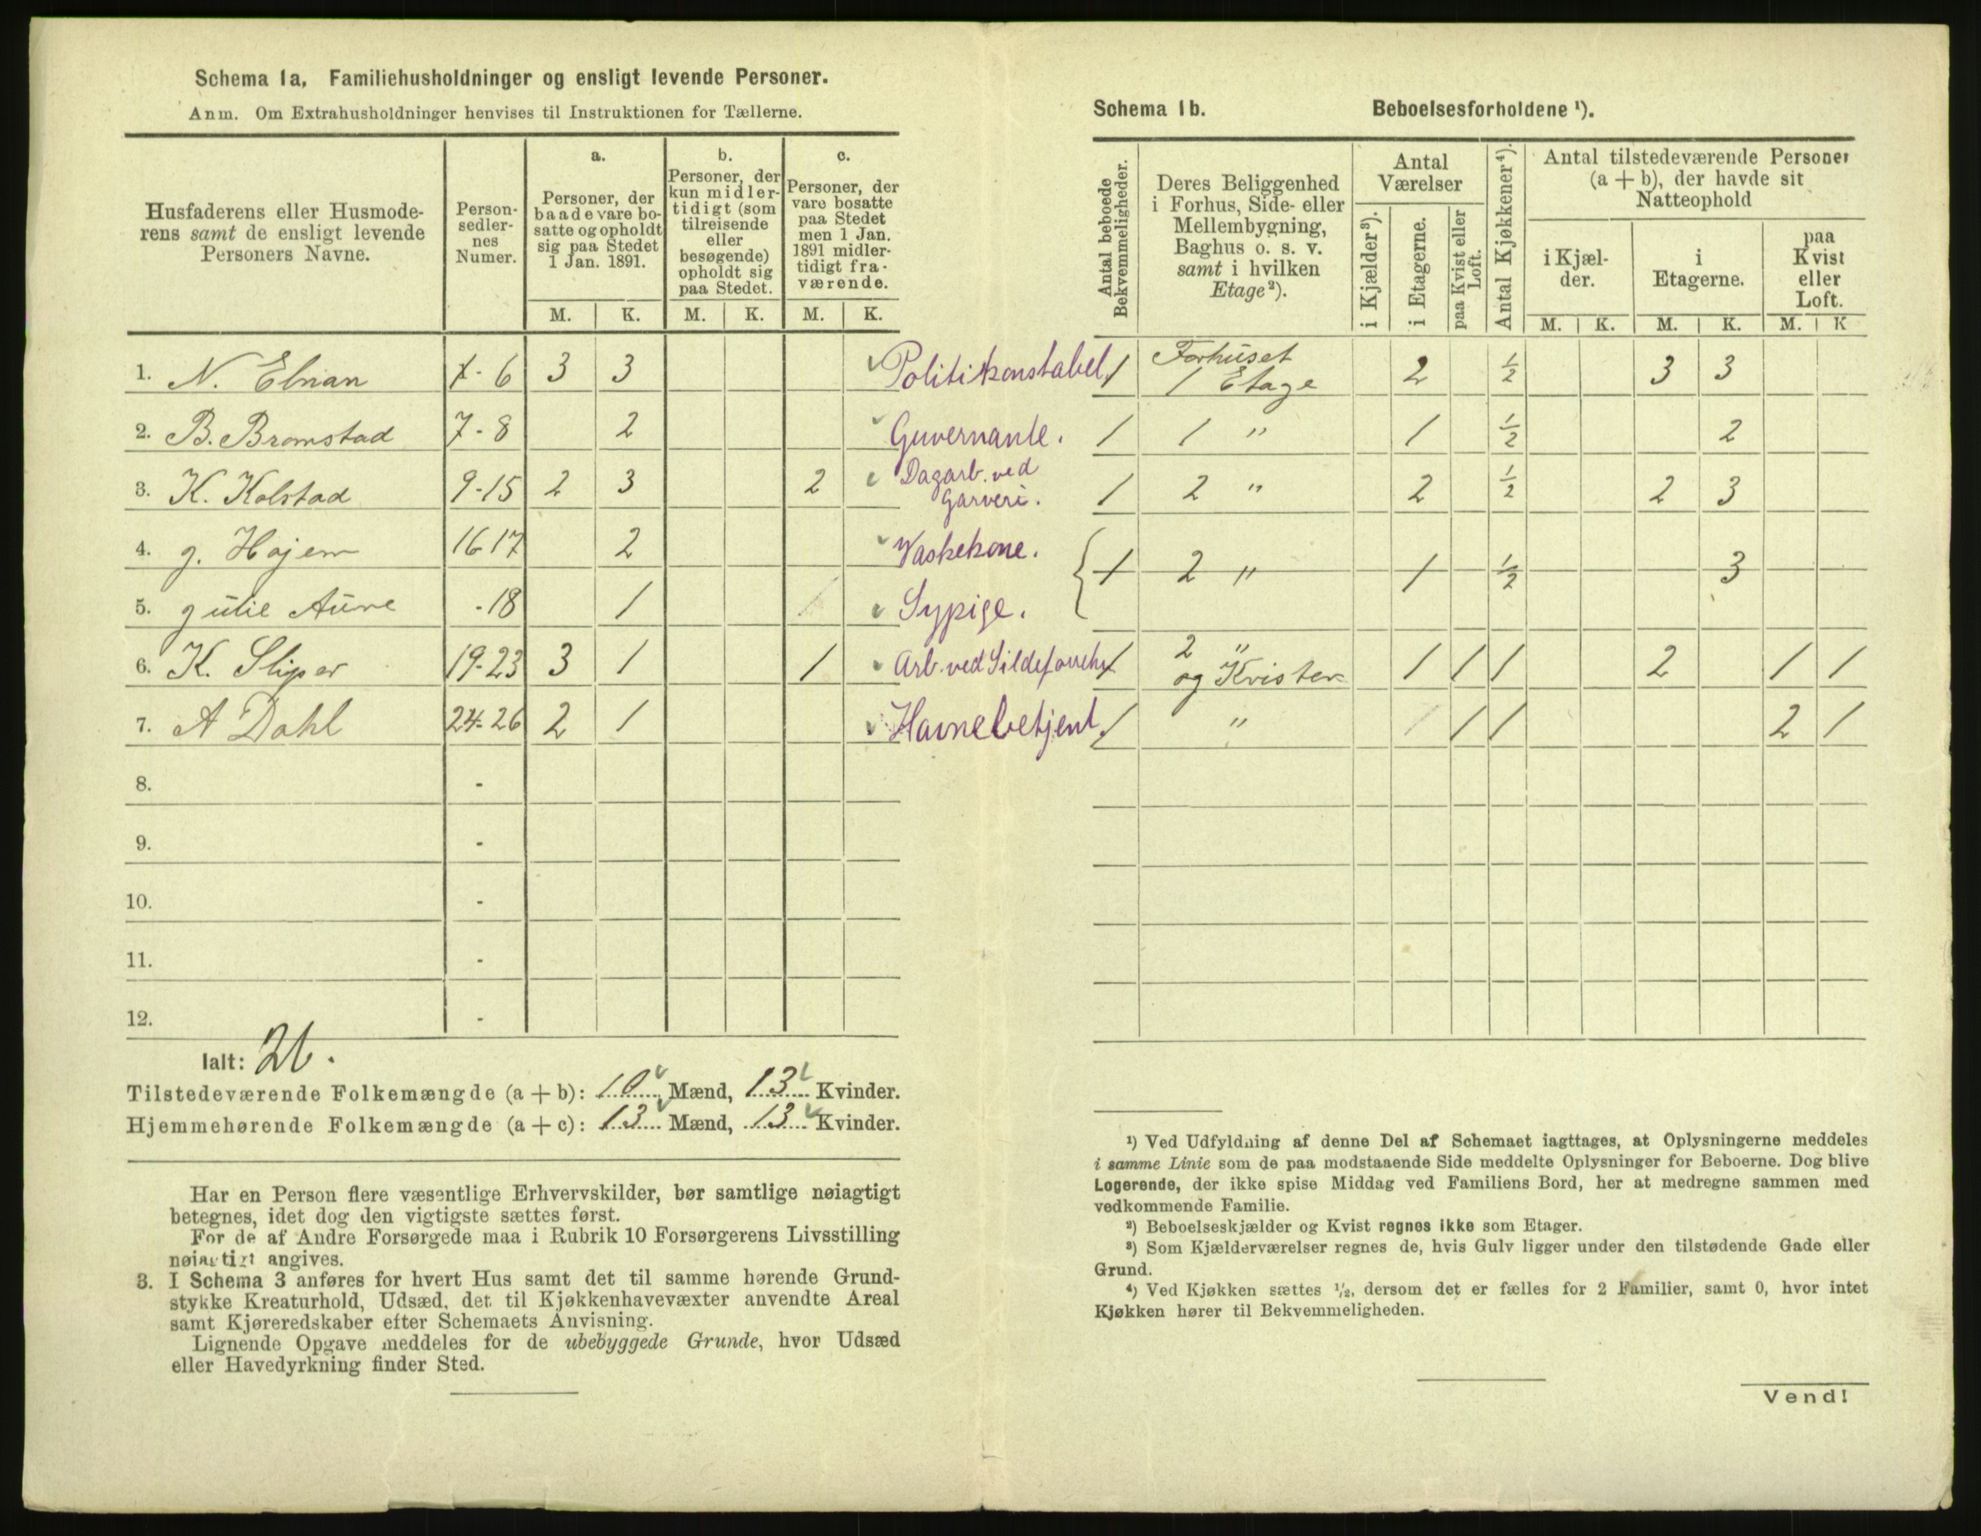 Schema 1a. Familiehusholdninger og ensligt levende Personer.
Anm. Om Extrahusholdninger henvises til Instruktionen for Tællerne.
Husfaderens eller Husmoderens samt de ensligt levende Personers Navne.
Personsedlernes Numer.
a.
Personer, der baade vare bosatte og opholdt sig paa Stedet 1 Jan. 1891.
b.
Personer, der kun midlertidigt (som tilreisende eller besøgende) opholdt sig paa Stedet.
c.
Personer, der vare bosatte paa Stedet men 1 Jan. 1891 midlertidigt fraværende.
M. K. M. K. M. K.
1. N. 1-6 3 3 Politikonstabel.
2. B. Bromstad 7-8 2 Guvernante.
3. K. Kolstad 9-15 2 3 2 Dagarb. ved Garveri.
4. J. Hojem 16 17 2 Vaskekone.
5. Julie Aune -18 1 Sypige.
6. K. Sliper 19-23 3 1 1 Arb. ved
7. A Dahl 24-26 2 1 Havnebetjent.
8. -
9. -
10. -
11. -
12. -
Ialt: 26.
Tilstedeværende Folkemængde (a + b): 10 Mænd, 13 Kvinder.
Hjemmehørende Folkemængde (a + c): 13 Mænd, 13 Kvinder.
Har en Person flere væsentlige Erhvervskilder, bør samtlige nøiagtigt
betegnes, idet dog den vigtigste sættes først.
For de af Andre Forsørgede maa i Rubrik 10 Forsørgerens Livsstilling
nøiagtigt angives.
3. I Schema 3 anføres for hvert Hus samt det til samme hørende Grund-
stykke Kreaturhold, Udsæd, det til Kjøkkenhavevæxter anvendte Areal
samt Kjøreredskaber efter Schemaets Anvisning.
Lignende Opgave meddeles for de ubebyggede Grunde, hvor Udsæd
eller Havedyrkning finder Sted.
Schema 1b. Beboelsesforholdene ¹).
Antal beboede Bekvemmeligheder.
Deres Beliggenhed i Forhus, Side- eller Mellembygning, Baghus o. s. v. samt i hvilken Etage²).
Antal Værelser
i Kjælder³).
i Etagerne.
paa Kvist eller Loft.
Antal Kjøkkener⁴).
Antal tilstedeværende Personer (a + b), der havde sit Natteophold
i Kjælder.
i Etagerne.
paa Kvist eller Loft.
M. K. M. K. M. K
1 Forhuset 1 Etage 2 ½ 3 3
1 1 " 1 ½ 2
1 2 " 2 ½ 2 3
1 2 " 1 ½ 3
1 2 " og Kvisten 1 1 1 2 1 1
1 " 1 1 2 1
¹) Ved Udfyldning af denne Del af Schemaet iagttages, at Oplysningerne meddeles
i samme Linie som de paa modstaaende Side meddelte Oplysninger for Beboerne. Dog blive
Logerende, der ikke spise Middag ved Familiens Bord, her at medregne sammen med
vedkommende Familie.
²) Beboelseskjælder og Kvist regnes ikke som Etager.
³) Som Kjælderværelser regnes de, hvis Gulv ligger under den tilstødende Gade eller
Grund.
⁴) Ved Kjøkken sættes ½, dersom det er fælles for 2 Familier, samt 0, hvor intet
Kjøkken hører til Bekvemmeligheden.
Vend!